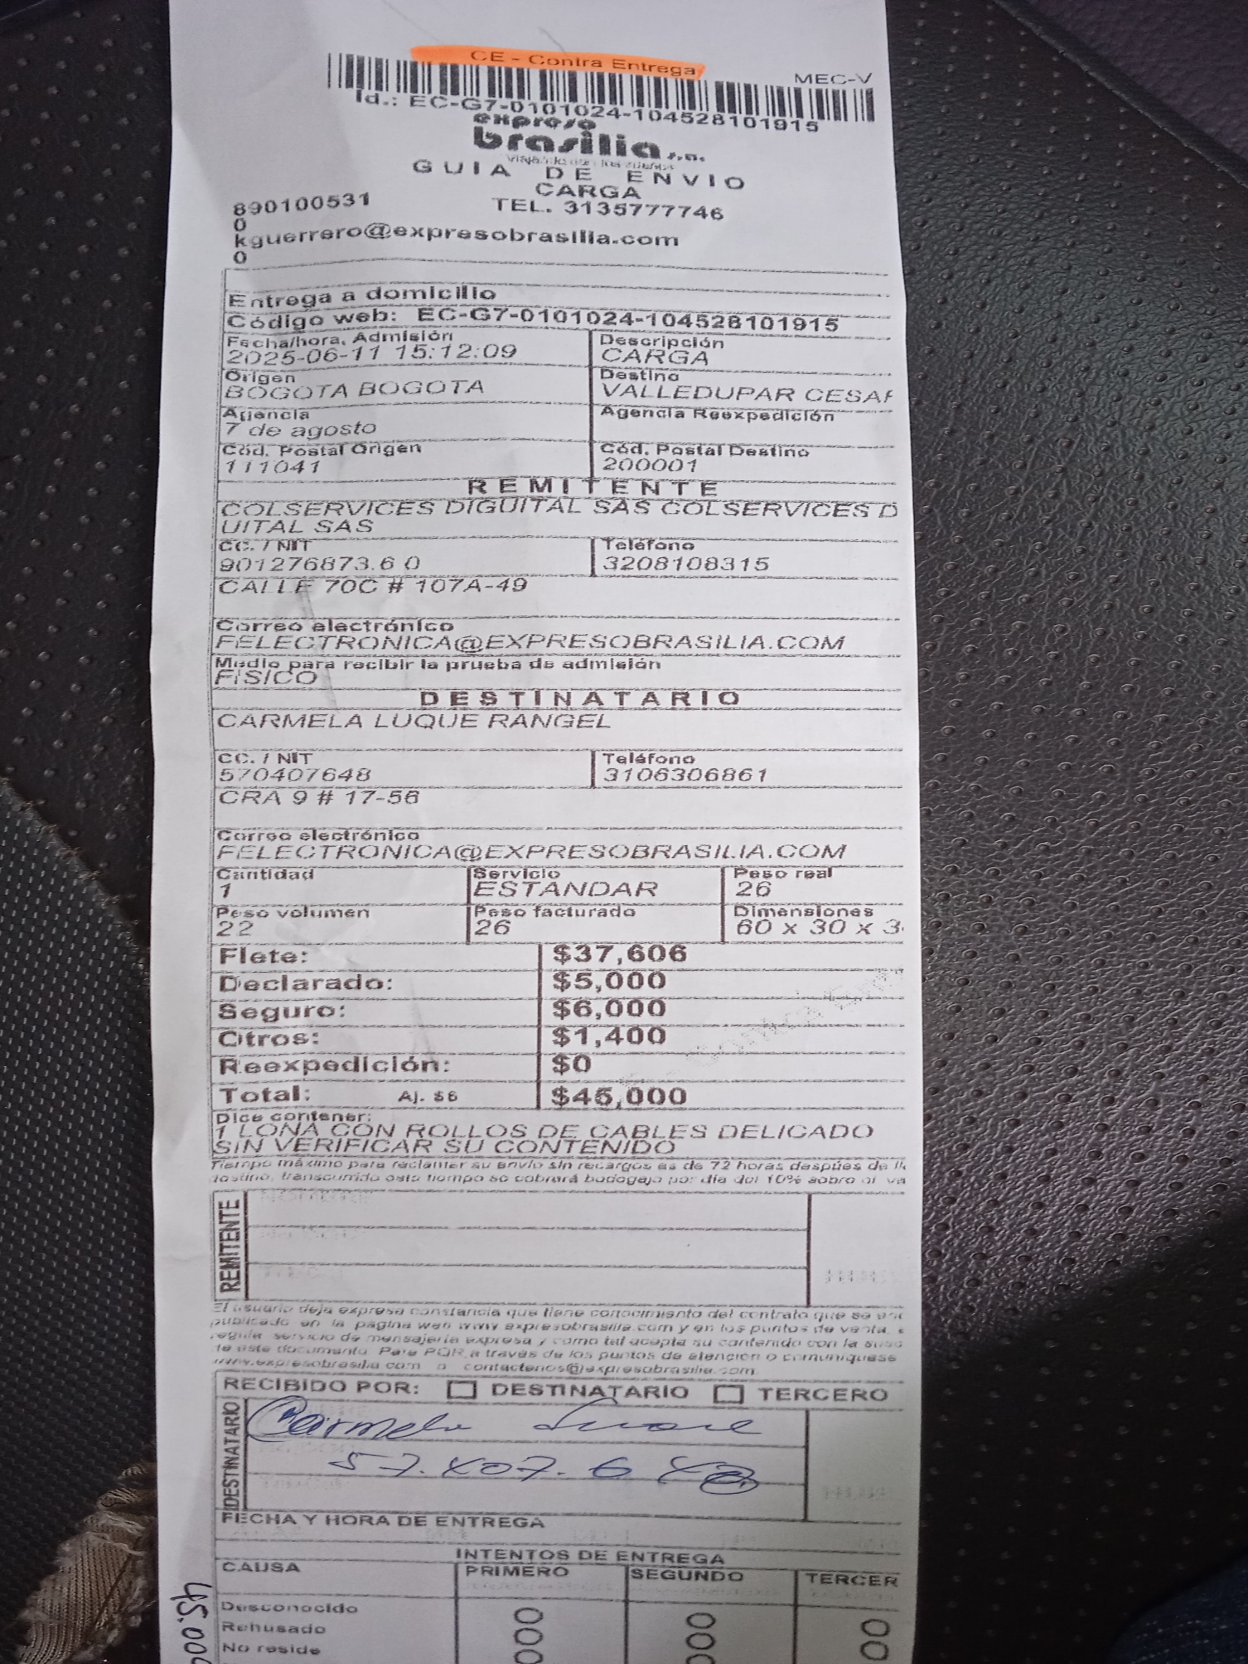 CE - Contra Entrega
MEC-V
Id.: EC-G7-0101024-104528101915
expreso
brasilia s.a.
GUIA DE ENVIO
CARGA
890100531
TEL. 3135777746
0
kguerrero@expresobrasilia.com
0
Entrega a domicilio
Código web: EC-G7-0101024-104528101915
Fecha/hora, Admisión Descripción
2025-06-11 15:12:09 CARGA
Origen Destino
BOGOTA BOGOTA VALLEDUPAR CESAR
Agencia Agencia Reexpedición
7 de agosto
Cód. Postal Origen Cód. Postal Destino
111041 200001
REMITENTE
COLSERVICES DIGUITAL SAS COLSERVICES D
UITAL SAS
CC. / NIT Teléfono
901276873.6 0 3208108315
CALLE 70C # 107A-49
Correo electrónico
FELECTRONICA@EXPRESOBRASILIA.COM
Medio para recibir la prueba de admisión
FISICO
DESTINATARIO
CARMELA LUQUE RANGEL
CC. / NIT Teléfono
570407648 3106306861
CRA 9 # 17-56
Correo electrónico
FELECTRONICA@EXPRESOBRASILIA.COM
Cantidad Servicio Peso real
1 ESTANDAR 26
Peso volumen Peso facturado Dimensiones
22 26 60 x 30 x 3
Flete: $37,606
Declarado: $5,000
Seguro: $6,000
Otros: $1,400
Reexpedición: $0
Total: Aj. $6 $45,000
Dice contener:
1 LONA CON ROLLOS DE CABLES DELICADO
SIN VERIFICAR SU CONTENIDO
Tiempo máximo para reclamar su envío sin recargos es de 72 horas despúes de
transcurrido este tiempo se cobrará bodegaje por día del 10% sobre el va
REMITENTE
El usuario deja expresa constancia que tiene conocimiento del contrato que se
publicado en la página web www.expresobrasilia.com y en los puntos de venta,
regula servicio de mensajería expresa y como tal acepta su contenido con la
este documento. Para PQR a través de los puntos de atención o comuníquese
www.expresobrasilia.com o contactenos@expresobrasilia.com
RECIBIDO POR: DESTINATARIO TERCERO
DESTINATARIO
Carmela
57.407.648
FECHA Y HORA DE ENTREGA
INTENTOS DE ENTREGA
CAUSA PRIMERO SEGUNDO TERCER
Desconocido
Rehusado
No reside
45.000